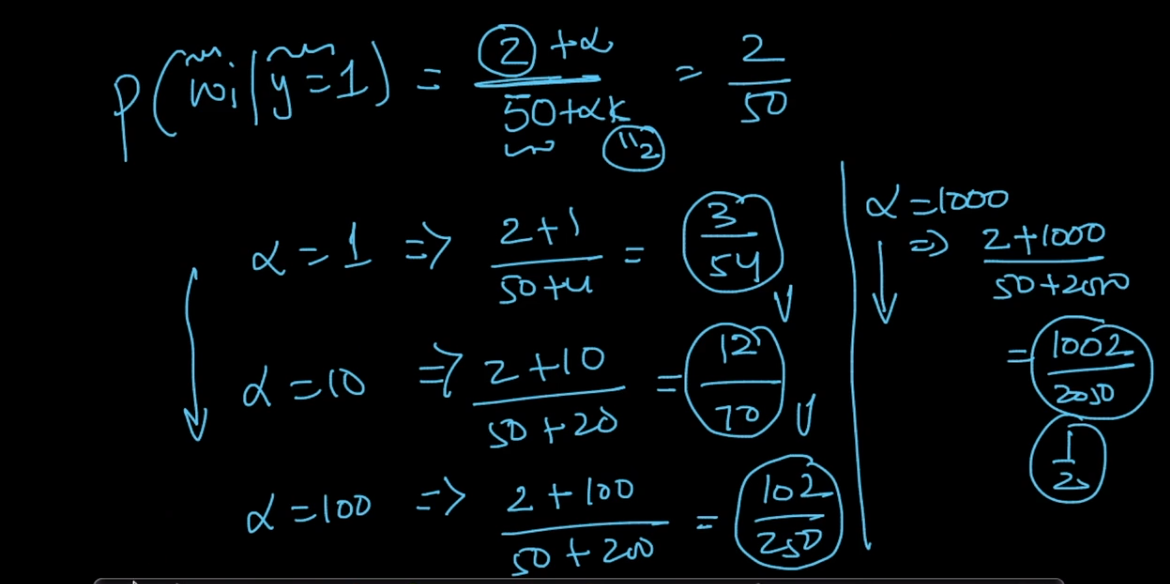 P(wi|y=1) = (2+α)/(50+αk) = 2/50
k "2
α = 1 ⇒ (2+1)/(50+4) = 3/54
α = 10 ⇒ (2+10)/(50+20) = 12/70
α = 100 ⇒ (2+100)/(50+200) = 102/250
α = 1000
⇒ (2+1000)/(50+2000)
= 1002/2050
1/2